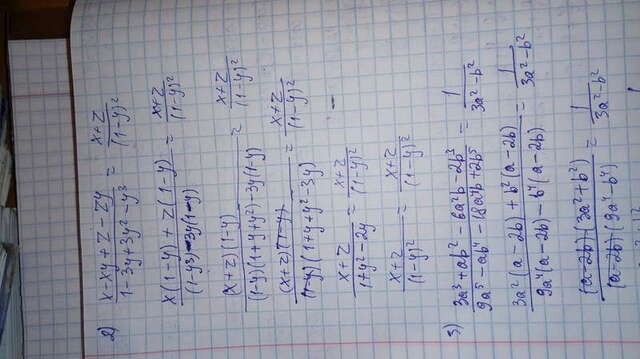 2) (x-xy+z-zy)/(1-3y+3y²-y³) = (x+z)/(1-y)²
(x(1-y)+z(1-y))/((1-y³)-3y(1-y)) = (x+z)/(1-y)²
((x+z)(1-y))/((1-y)(1+y+y²)-3y(1-y)) = (x+z)/(1-y)²
((x+z)(1-y))/((1-y)(1+y+y²-3y)) = (x+z)/(1-y)²
(x+z)/(1+y²-2y) = (x+z)/(1-y)²
(x+z)/(1-y)² = (x+z)/(1-y)²
3) (3a³+ab²-6a²b-2b³)/(9a⁵-ab⁴-18a⁴b+2b⁵) = 1/(3a²-b²)
(3a²(a-2b)+b²(a-2b))/(9a⁴(a-2b)-b⁴(a-2b)) = 1/(3a²-b²)
((a-2b)(3a²+b²))/((a-2b)(9a⁴-b⁴)) = 1/(3a²-b²)